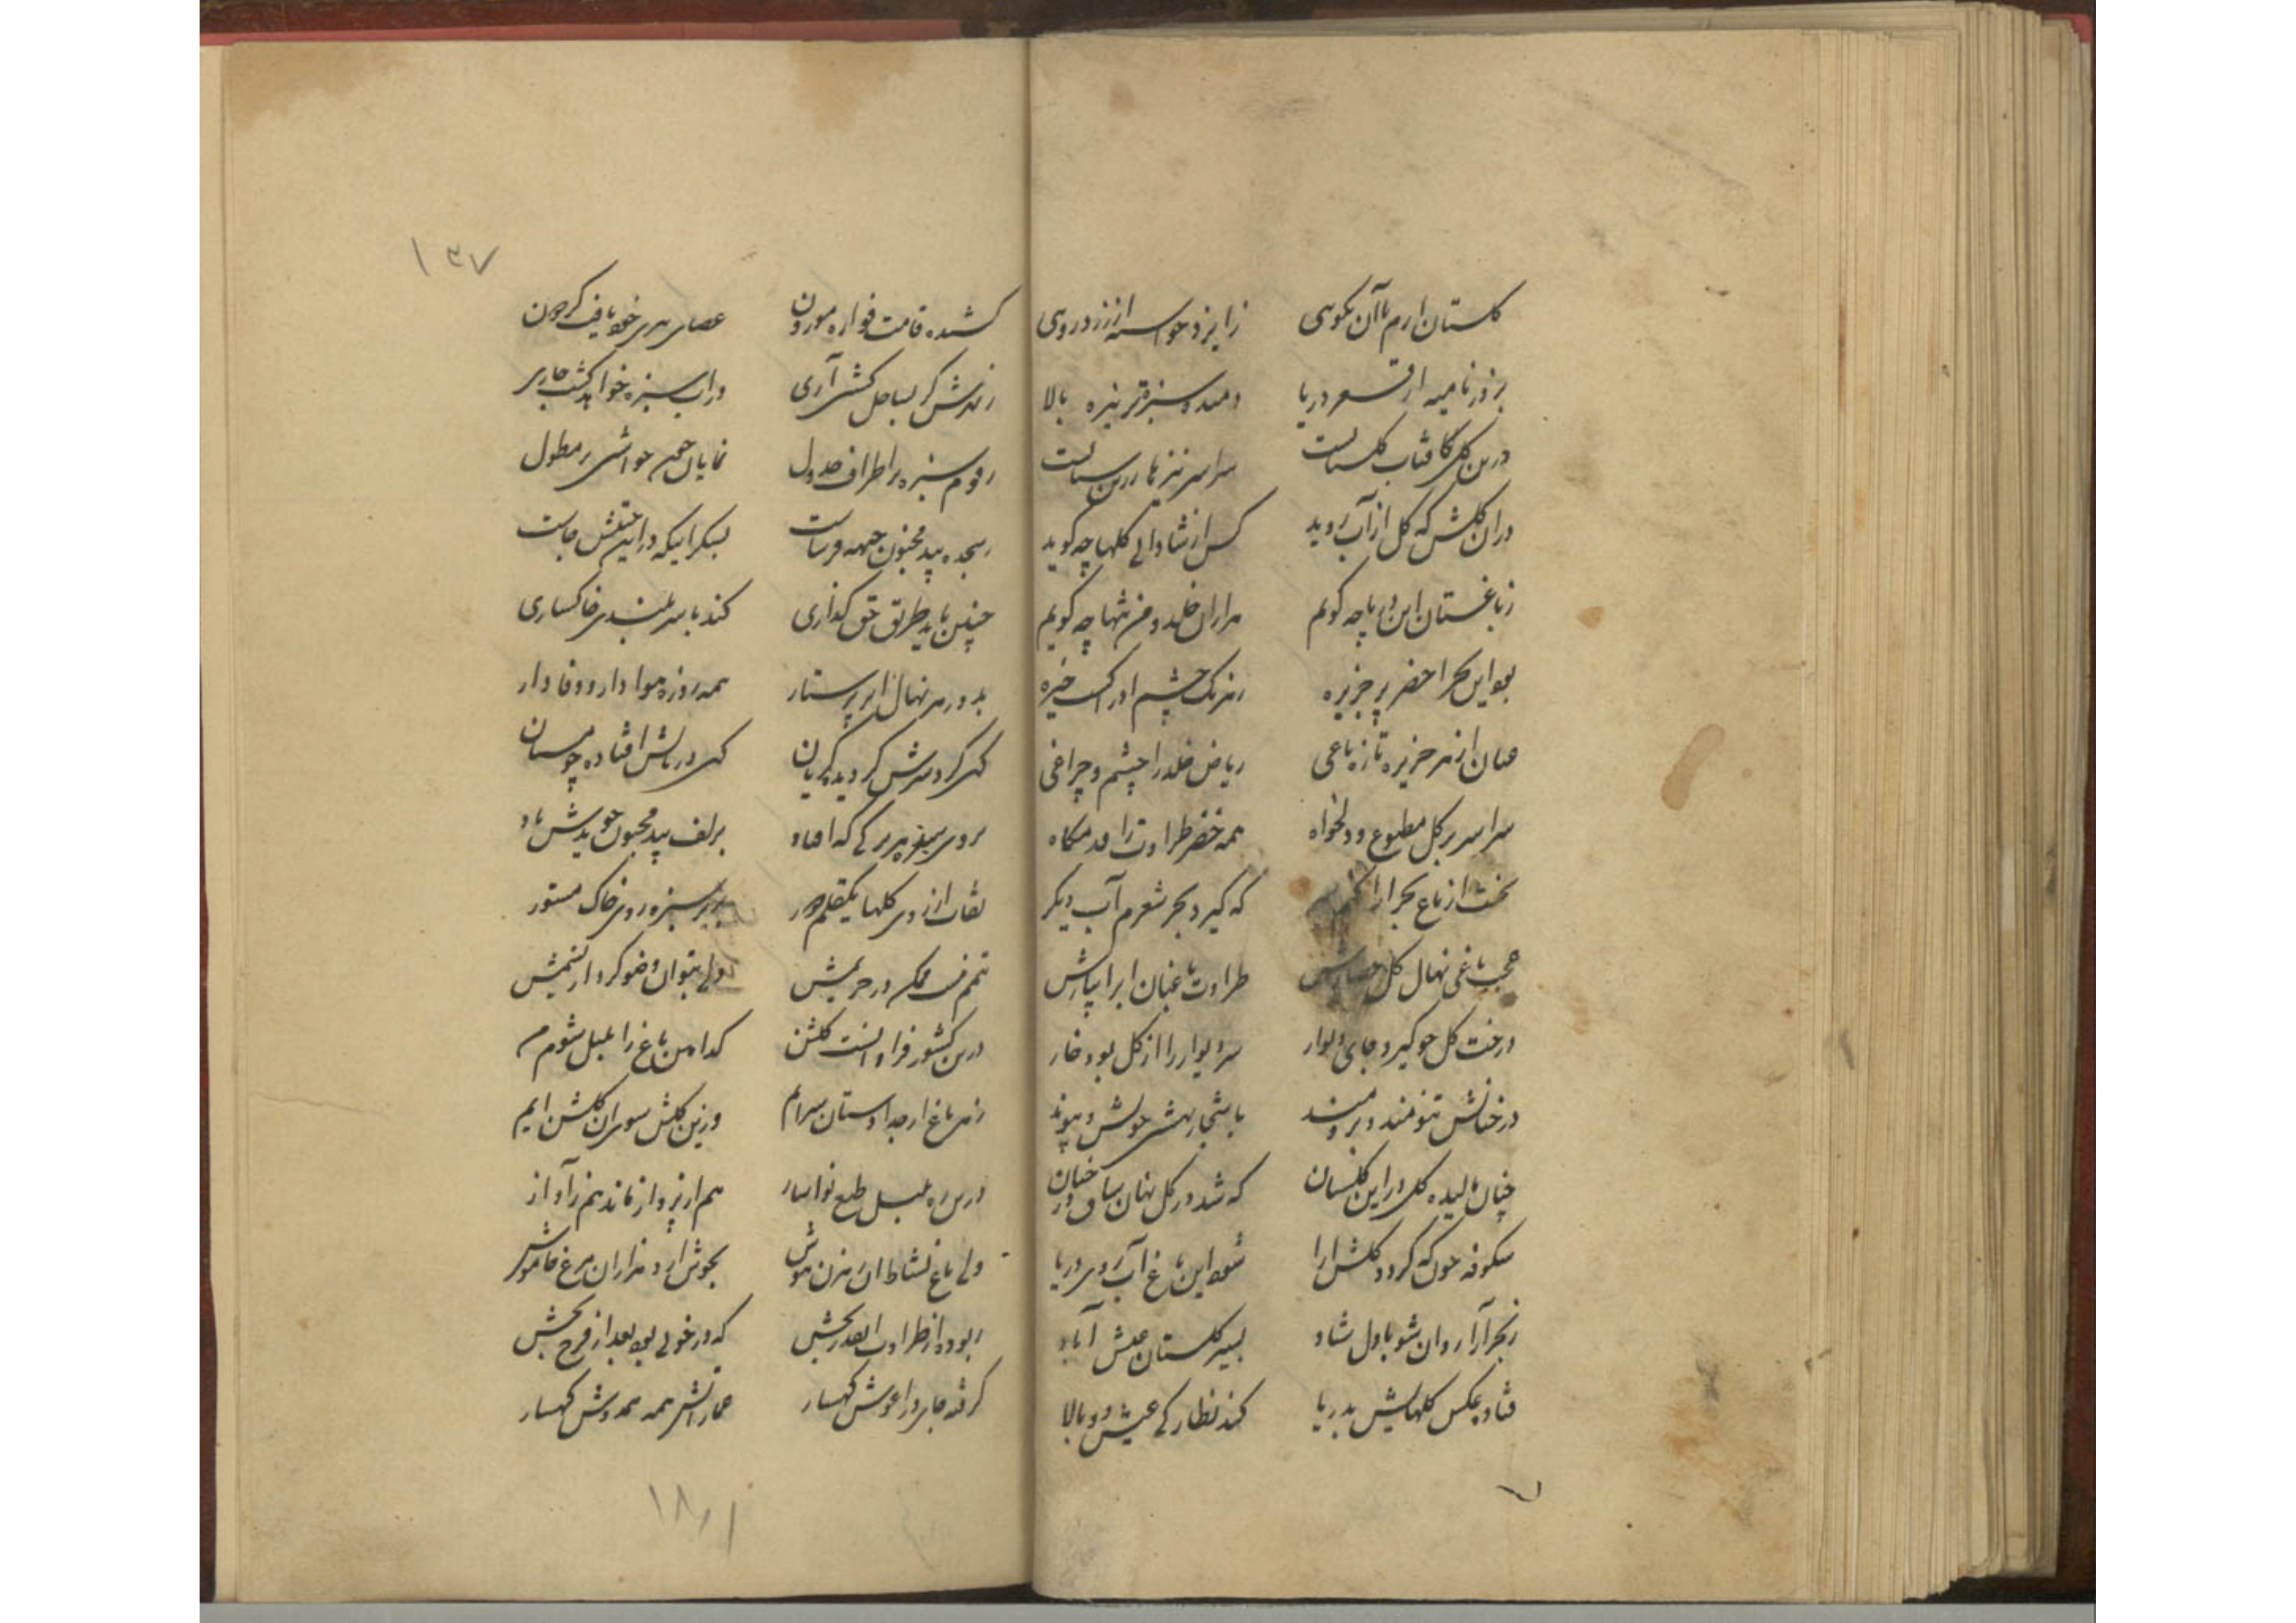 گلستان ارم با آن نکویی ز ایزد خواسته از زردرویی
بزور نامیه از قعر دریا دمیده سبزه تر نیزه بالا
درین گل کافتاب گلستانست سراسر نیزها
در آن گلشن که گل از آب روید کس از شادابی گلها چه گوید
ز باغستان این دریا چه گویم هزاران خلد و من تنها چه گویم
بود این بحر اخضر پر جزیره ز هر یک چشم ادراکست خیره
عیان از هر جزیره تازه باغی ریاض خلد را چشم و چراغی
سراسر پر گل مطبوع و دلخواه همه خضر طراوت را قدمگاه
نخست از باغ بحرآرا که گیرد بحر شعرم آب دیگر
عجب باغی نهال گل حصارش طراوت باغبان ابر آبیارش
درخت گل چو گیرد جای دیوار سر دیوار را از گل بود خار
درختانش تنومند و برومند باشجار بهشتی خویش و پیوند
چنان بالیده گل در این گلستان که شد در گل نهان ساق درختان
شکوفه چون که گردد گلشن آرا شود این باغ آب روی دریا
ز بحرآرا روان شو با دل شاد بسیر گلستان عیش آباد
فتاده عکس گلهایش بدریا کند نظارگی عیش دوبالا
۱۳۷
کشیده قامت فواره موزون عصای پیری خود یافت گردون
زندش گر بساحل کشتی آری در آب سبزه خواهد گشت جاری
رقوم سبزه بر اطراف جدول نمایان چون حواشی بر مطول
بسجده بید مجنون جبهه فرساست بشکر اینکه در این گلشنش جاست
چنین باید طریق حق گذاری کند با سربلندی خاکساری
بدور هر نهال ابر پرستار همه روزه هوادار و وفادار
گهی گرد سرش گردیده گریان گهی در پایش افتاده چو مستان
بروی سبزه هر برگی که افتاد بزلف بید مجنون
نقاب از روی گلها یکقلم دور بزیر سبزه روی خاک مستور
تیمم نیست ممکن در حریمش ولی بتوان وضو کرد از نسیمش
درین کشور فراوانست گلشن کدامین باغ را بلبل شوم من
ز هر باغ ار جدا دستان سرایم وزین گلشن سوی آن گلشن آیم
درین ره بلبل طبع نواساز هم از پرواز ماند هم ز آواز
ولی باغ نشاط آن رهزن هوش بجوش آرد هزاران مرغ خاموش
ربوده از طراوت آنقدر بخش که در خوبی بود بعد از فرح بخش
گرفته جای در آغوش کهسار عماراتش همه همدوش کهسار